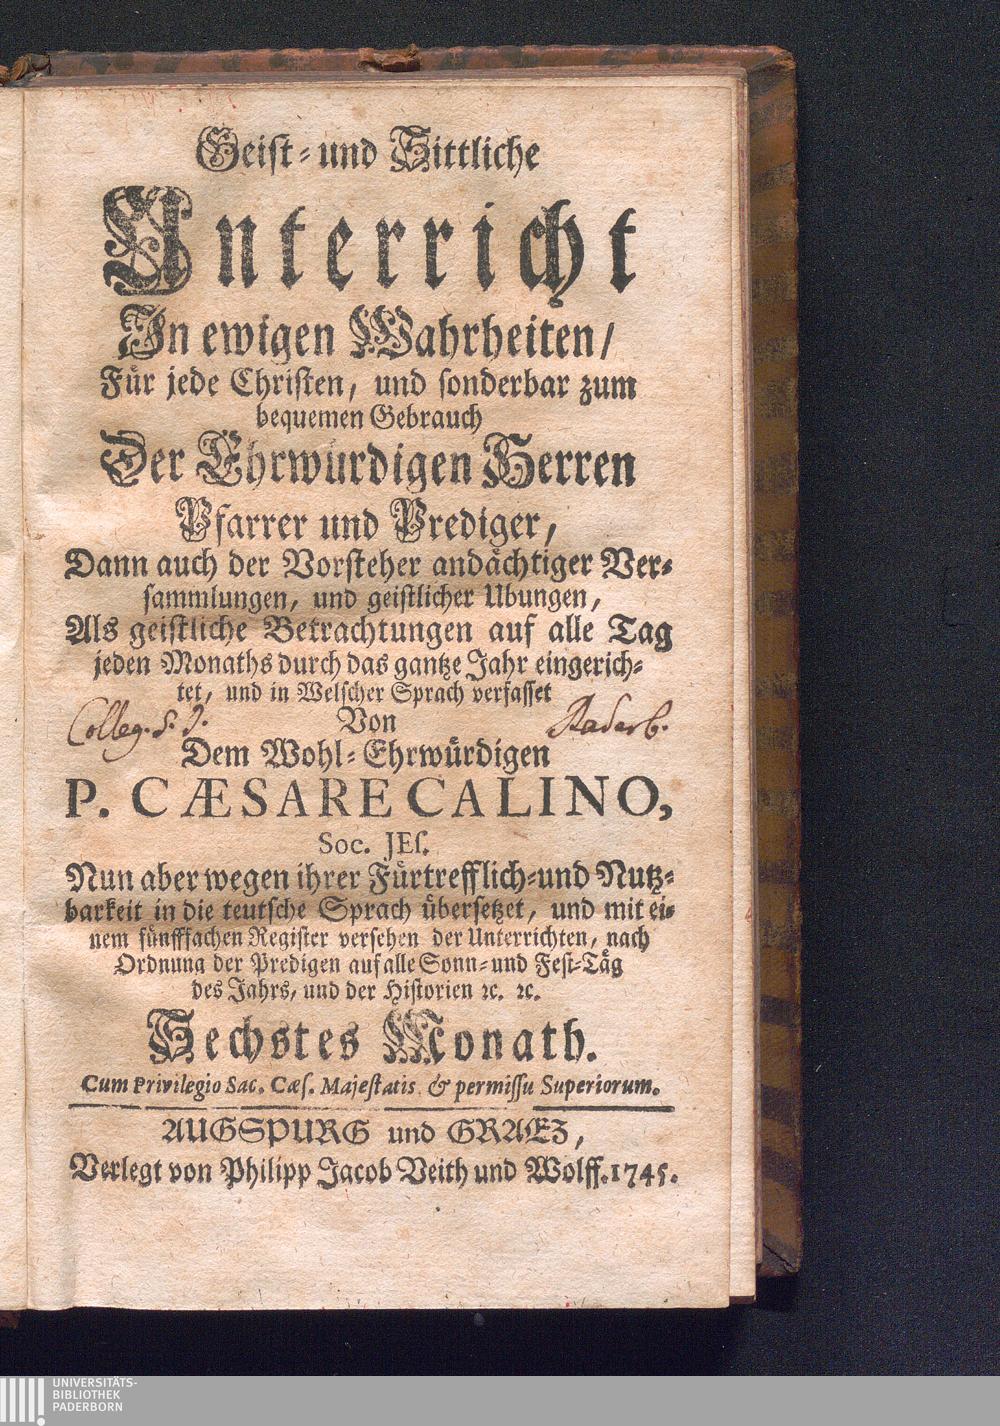 Geist- und Sittliche
Unterricht
In ewigen Wahrheiten/
Für jede Christen, und sonderbar zum
bequemen Gebrauch
Der Ehrwürdigen Herren
Pfarrer und Prediger,
Dann auch der Vorsteher andächtiger Ver-
sammlungen, und geistlicher Ubungen,
Als geistliche Betrachtungen auf alle Tag
jeden Monaths durch das gantze Jahr eingerich-
tet, und in Welscher Sprach verfasset
Colleg. S. J. Von Paderb.
Dem Wohl-Ehrwürdigen
P. CÆSARE CALINO,
Soc. JEſ.
Nun aber wegen ihrer Fürtrefflich- und Nutz-
barkeit in die teutsche Sprach übersetzet, und mit ei-
nem fünfffachen Register versehen der Unterrichten, nach
Ordnung der Predigen auf alle Sonn- und Fest-Täg
des Jahrs, und der Historien ꝛc. ꝛc.
Sechstes Monath.
Cum Privilegio Sac. Cæſ. Majeſtatis & permiſſu Superiorum.
AUGSPURG und GRAEZ,
Verlegt von Philipp Jacob Veith und Wolff. 1745.
UNIVERSITÄTS-
BIBLIOTHEK
PADERBORN